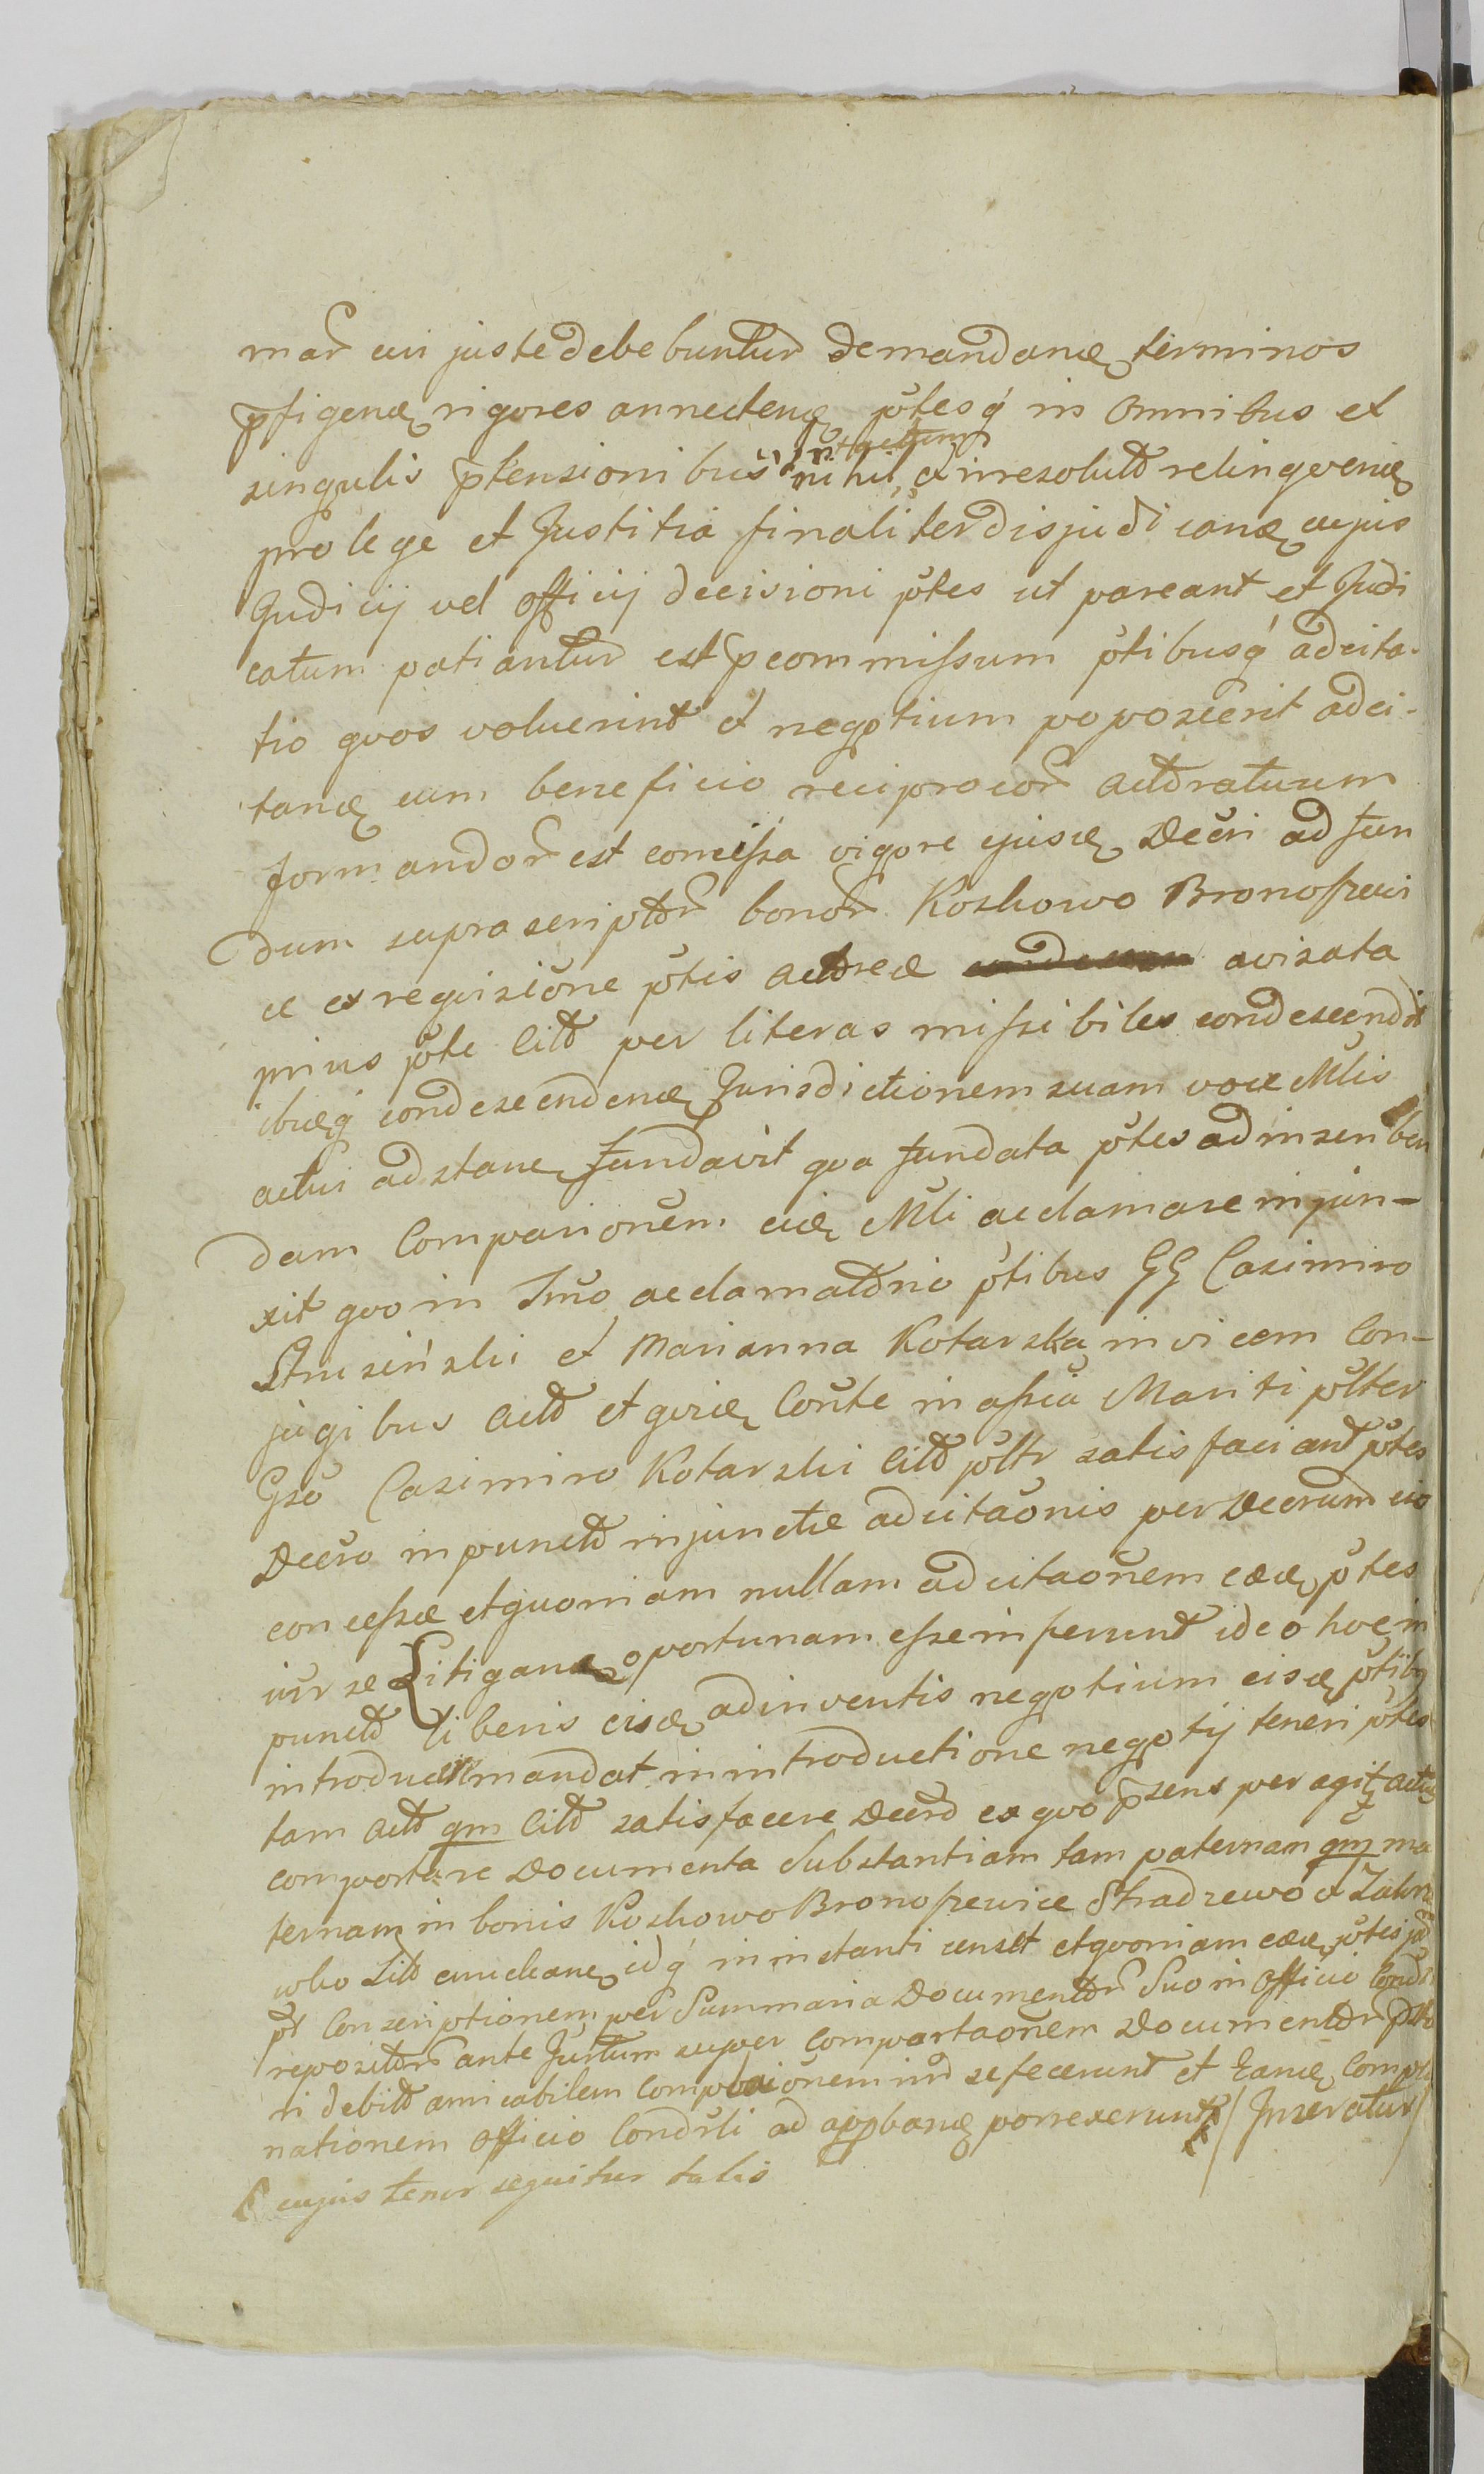 mar cui juste debebuntur demandane terminos
pfigenæ rigores annectenæ ptesq in omnibus et
singulis ptensionibus nihil ex irresoluto relinqvenæ
pro lege et Justitia finaliter disjudicanæ cujus
Judicij vel officij decisioni ptes ut pareant et Judi
catum patiantur est pcommissum ptibusq adcita-
tio qvos voluerint et negotium poposcerit adci-
tanæ cum beneficio reciprocor actoraturum
formandor est concessa vigore ejusd Decri ad fun
dum suprascriptor bonor Koskowo Bronoszewi
ce ex reqvisitione ptis actoreæ avisata
prius pte Citt per literas missibiles condescendit
ibidq condescendenæ Jurisdictionem suam voce Mlis
actui adstane fundavit qva fundata ptes ad inscriben
dam Comparionem eid Mli acclamare injun-
xit qvo in Tmo acclamatorio ptibus GG Casimiro
Strusinski et Marianna Kotarska invicem Con-
jugibus Actt et qvid Conite in assia Mariti psltter
Gso Casimiro Kotarski Citt psltr satisfaciant ptes
Decro in puncto injunctæ adcitaonis per Decrum eis
concessæ et quoniam nullam adcitaonem eæd ptes
inr se Litigane oportunam esse inferunt ideo hoc in
puncto liberis eisd adinventis negotium eisd ptibq
introducere mandat in introductione negotij teneri ptes
tam Actt qm Citt satisfacere Decro ex qvo psens peragitr actus
comportare Documenta Substantiam tam paternam qm ma
ternam in bonis Koskowo Bronoszewice Stradzewo et Zakrze
wko Sitt enucleane idq in instanti censet et qvoniam eæd ptes jad
pt Conscriptionem per Summaria Documentor Suo in Officio Condri
repositor ante Justum super Comportaonem Documentor
ri debitt amicabilem Compoaionem inr se fecerunt et Eand Compla
nationem Officio Condrli ad appbanæ porrexerunt / Inseratur /
cujus tenor seqvitur talis